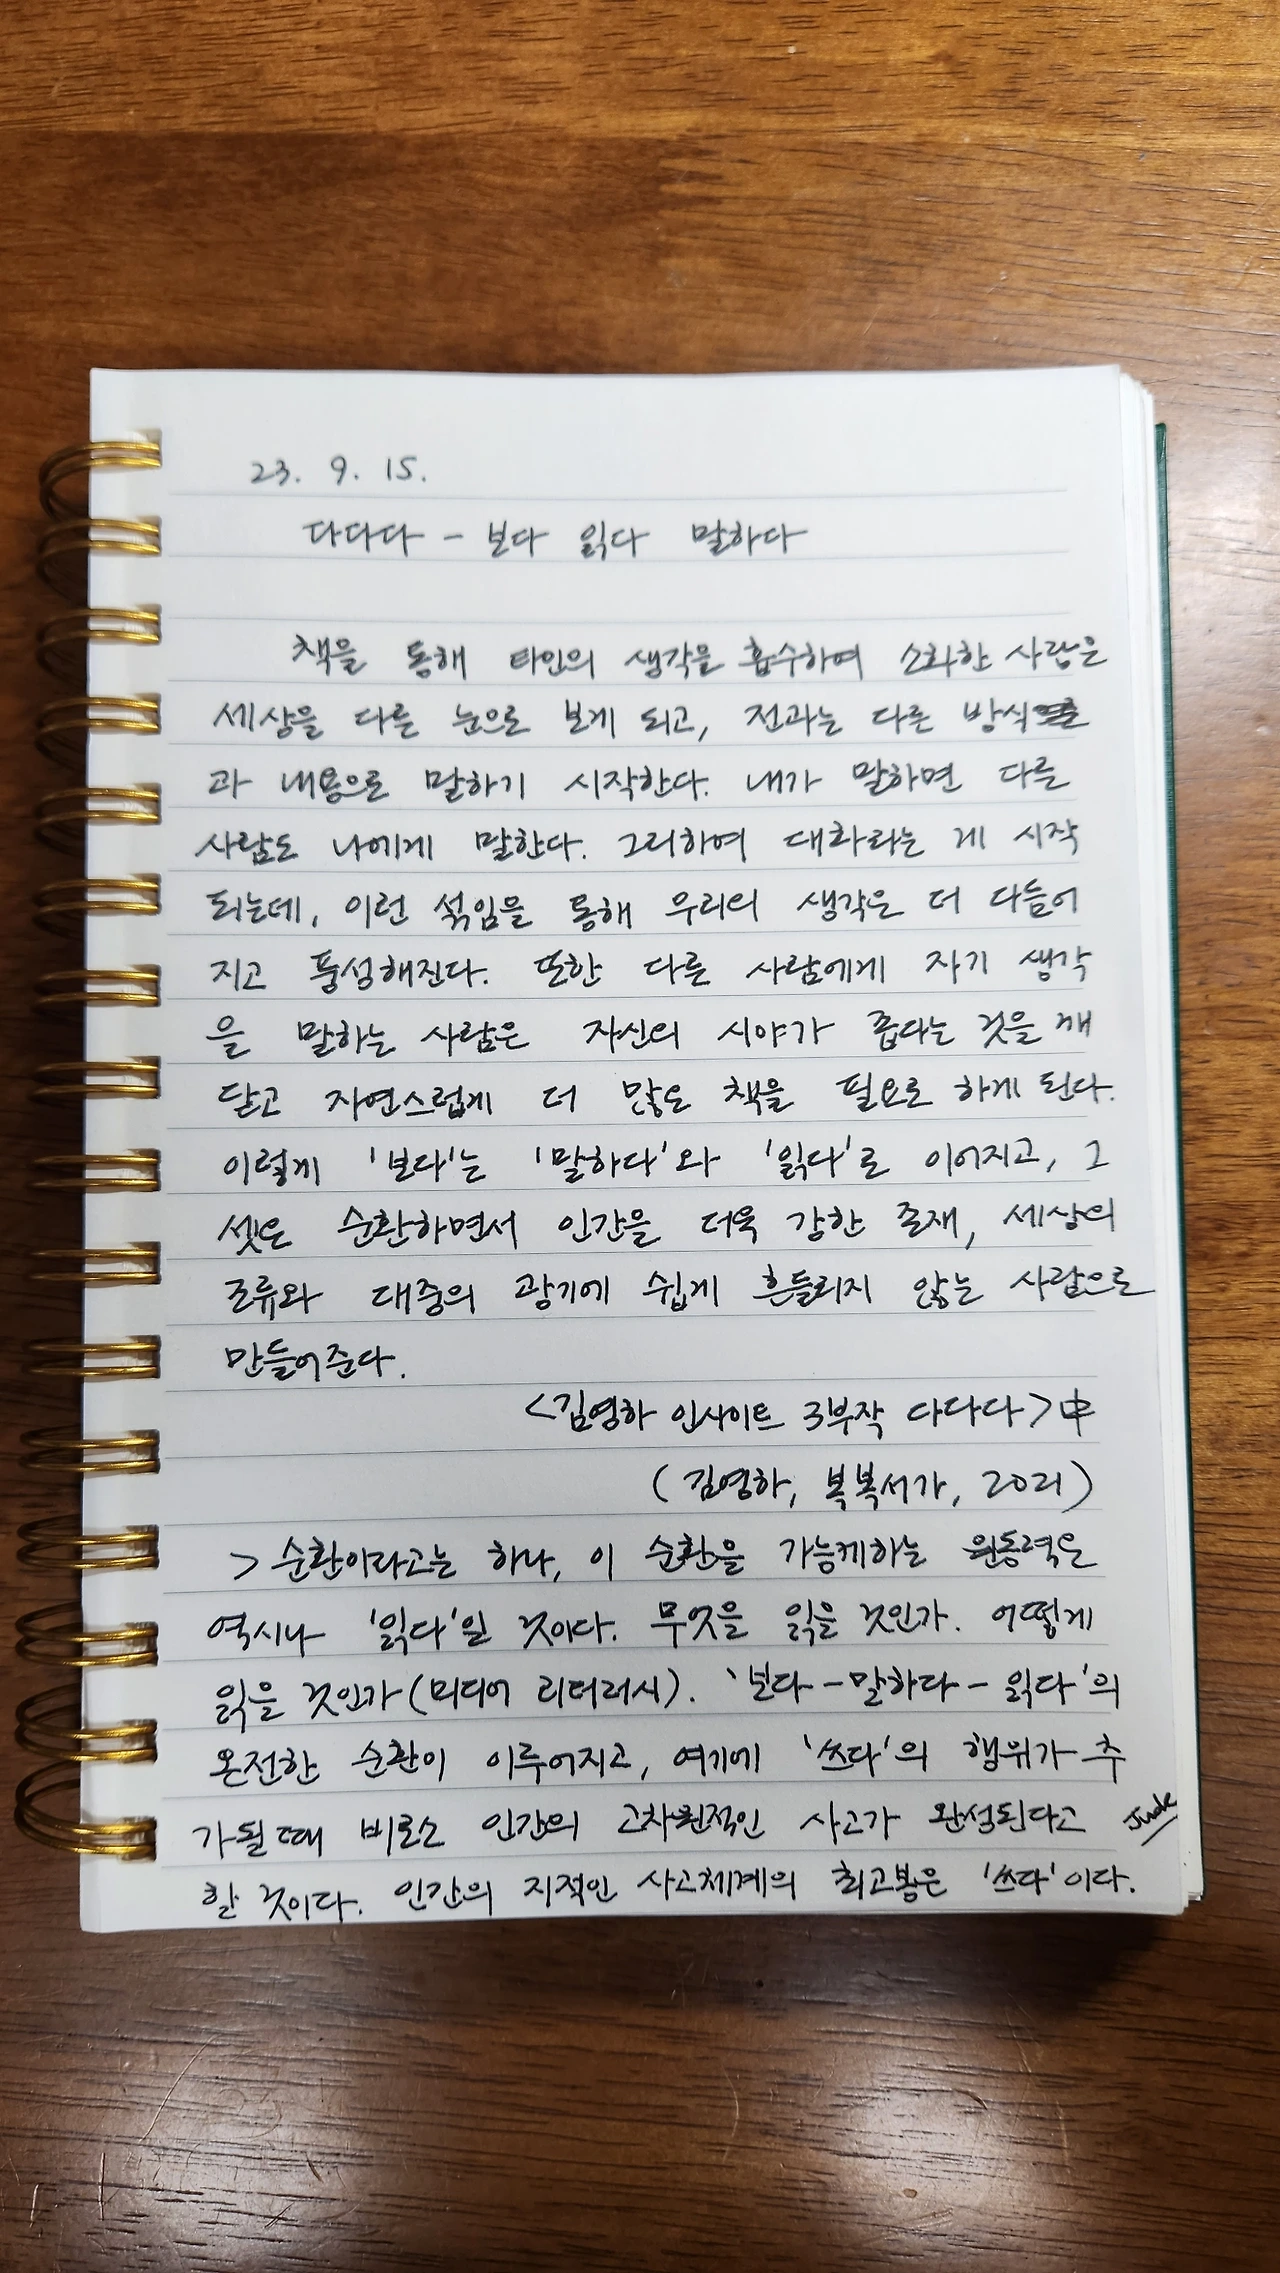 23. 9. 15.
다다다 - 보다 읽다 말하다
책을 통해 타인의 생각을 흡수하여 소화한 사람은
세상을 다른 눈으로 보게 되고, 전과는 다른 방식
과 내용으로 말하기 시작한다. 내가 말하면 다른
사람도 나에게 말한다. 그리하여 대화라는 게 시작
되는데, 이런 섞임을 통해 우리의 생각은 더 다듬어
지고 풍성해진다. 또한 다른 사람에게 자기 생각
을 말하는 사람은 자신의 시야가 좁다는 것을 깨
닫고 자연스럽게 더 많은 책을 필요로 하게 된다.
이렇게 '보다'는 '말하다'와 '읽다'로 이어지고, 그
셋은 순환하면서 인간을 더욱 강한 존재, 세상의
조류와 대중의 광기에 쉽게 흔들리지 않는 사람으로
만들어준다.
<김영하 인사이트 3부작 다다다> 中
(김영하, 복복서가, 2021)
> 순환이라고는 하나, 이 순환을 가능케하는 원동력은
역시나 '읽다'일 것이다. 무엇을 읽을 것인가. 어떻게
읽을 것인가(미디어 리터러시). '보다-말하다-읽다'의
온전한 순환이 이루어지고, 여기에 '쓰다'의 행위가 추
가될 때 비로소 인간의 고차원적인 사고가 완성된다고
할 것이다. 인간의 지적인 사고체계의 최고봉은 '쓰다'이다.
Jude